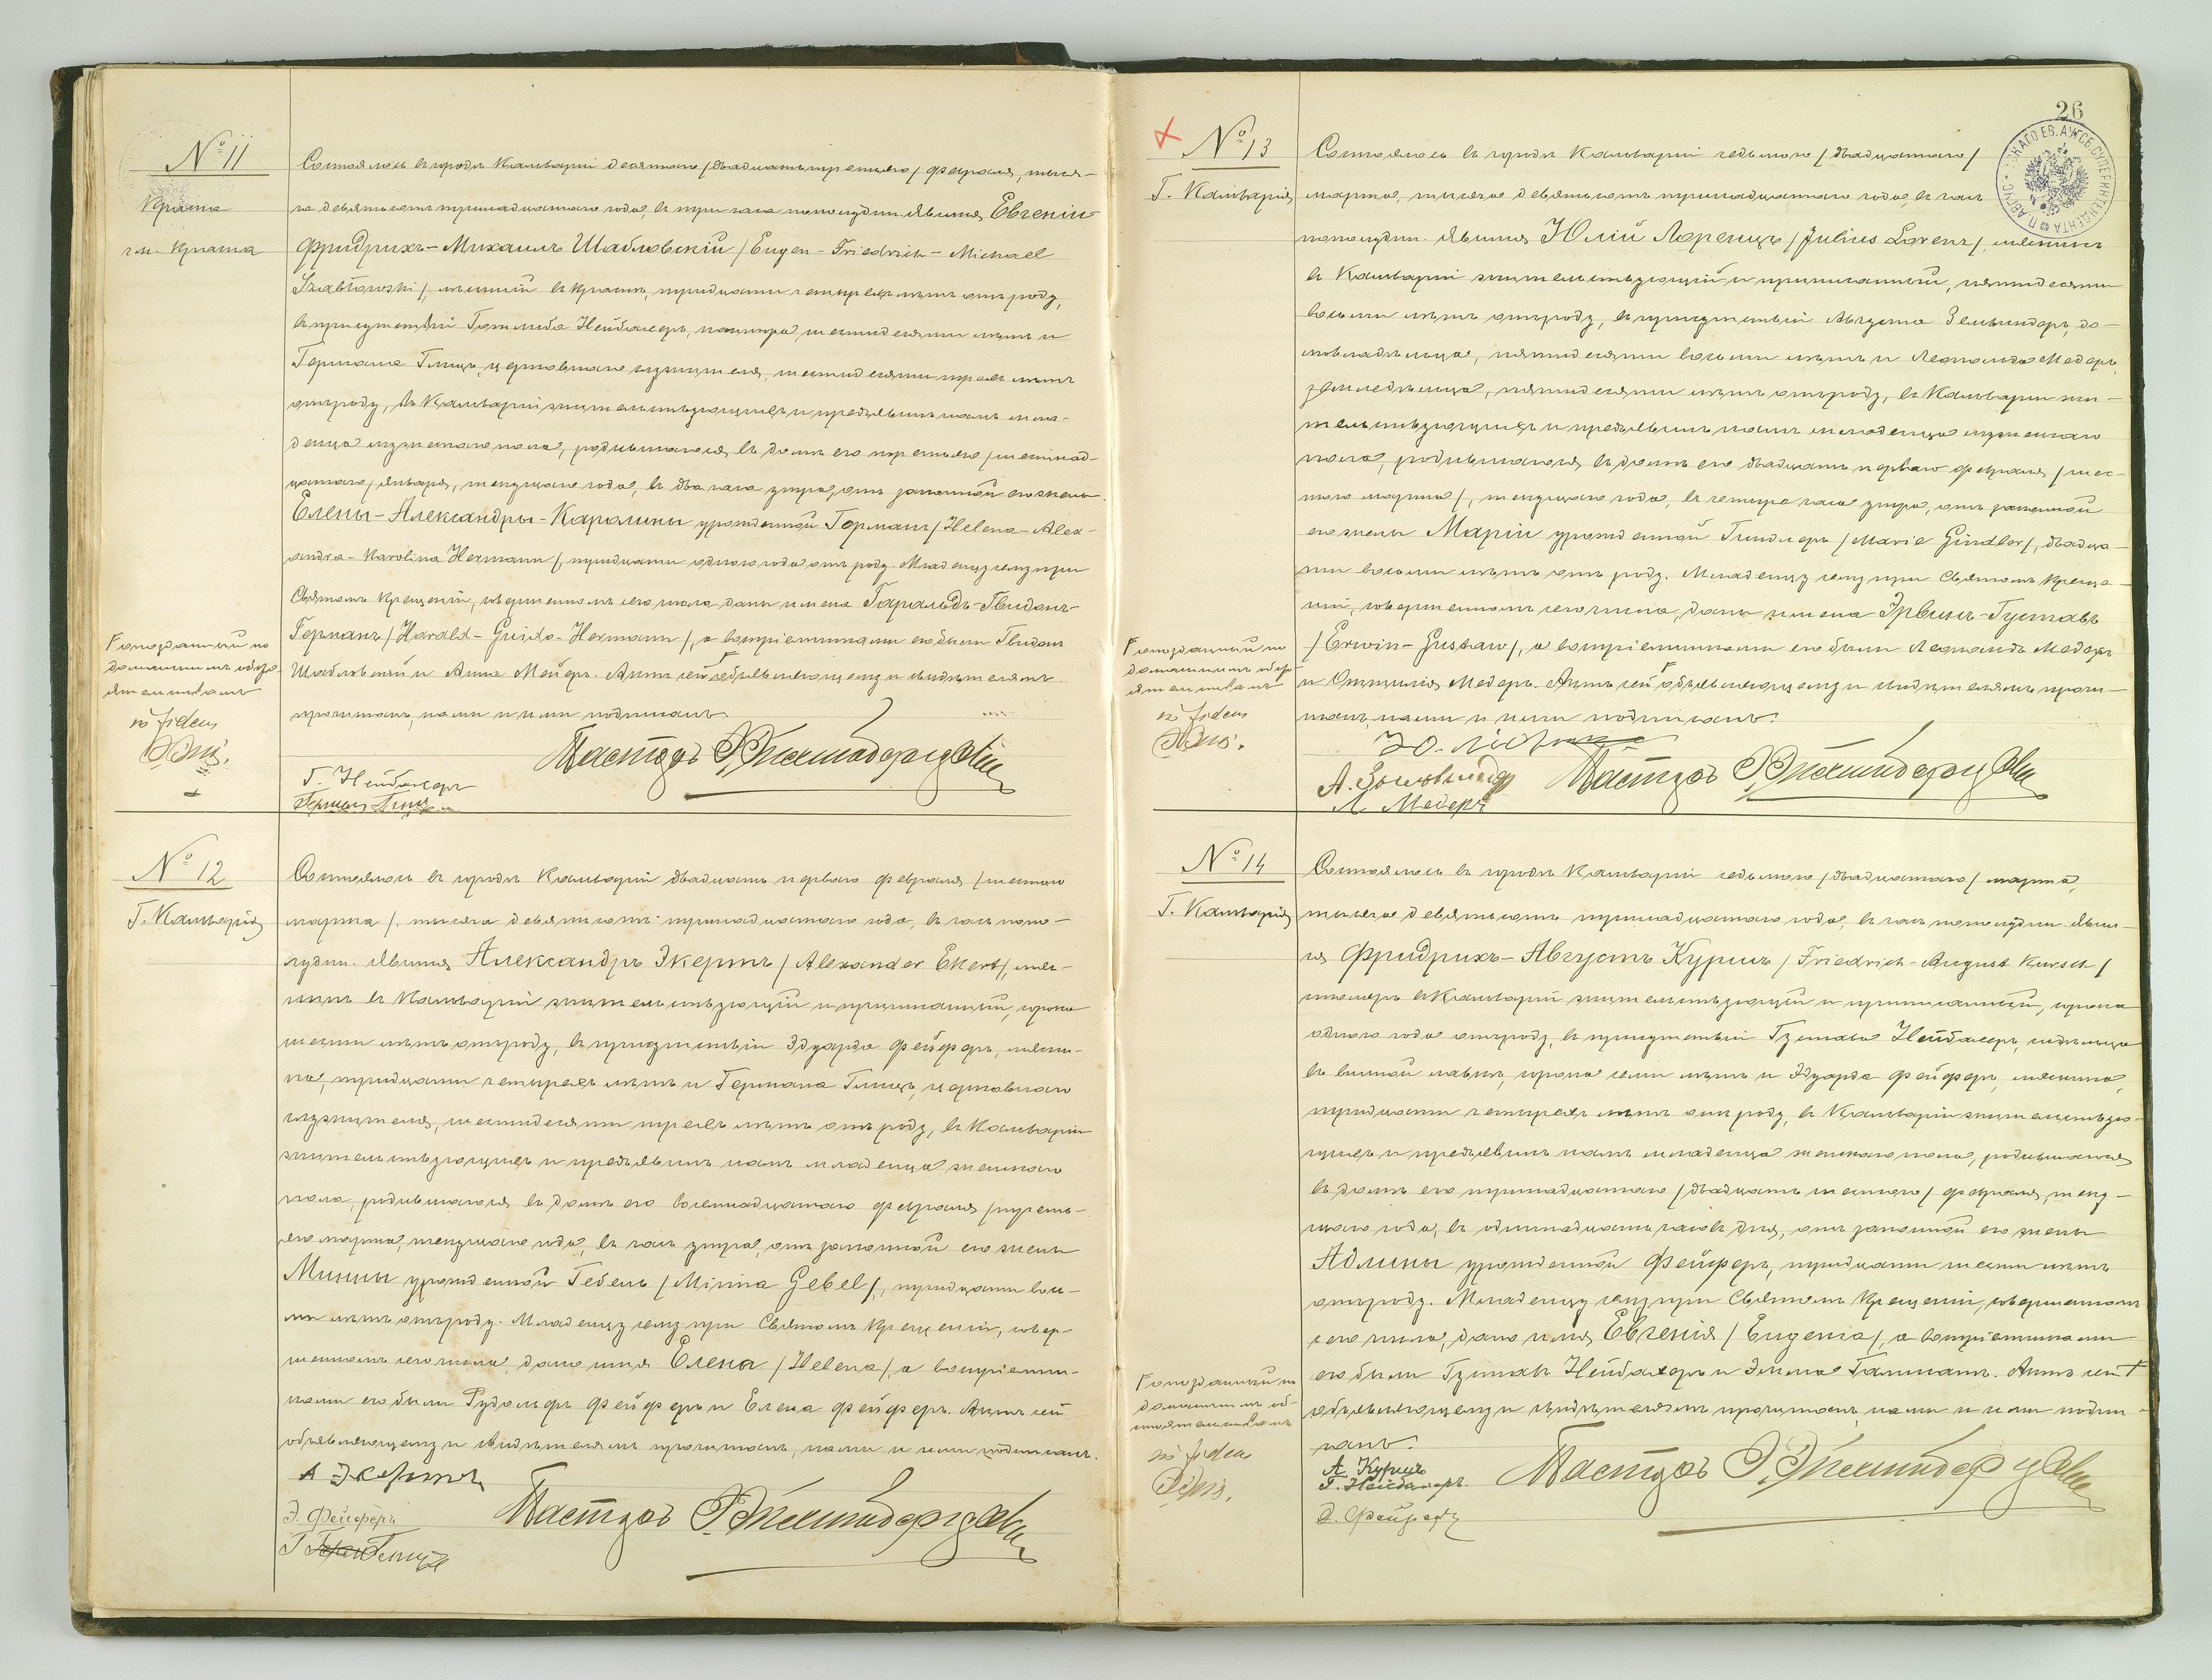 № 11
Крама
гм. Крама
Состоялось въ городѣ Кальваріи десятаго /двадцать третьяго/ февраля, тыся-
ча девятьсотъ тринадцатаго года, въ три часа пополудни. Явился Евгеній-
Фридрихъ-Михаилъ Шабловскій /Eugen-Friedrich-Michael
Szabłowski/, въ Крамѣ, тридцати четырехъ лѣтъ отъ роду,
въ присутствіи Готлиба Нейбахеръ, кантора, шестидесяти лѣтъ и
Германа Глицъ, церковнаго служителя, шестидесяти трехъ лѣтъ
отъ роду, въ Кальваріи жительствующихъ и предъявилъ намъ мла-
денца мужескаго пола, родившагося въ домѣ его третьяго /шестнад-
цатаго/ января, текущаго года, въ два часа утра, отъ законной его жены
Елены-Александры-Каролины урожденной Германъ /Helena-Alex-
andra-Karolina Hermann/, тридцати одного года отъ роду. Младенцу сему при
Святомъ Крещеніи, совершенномъ сего числа даны имена Гаральдъ-Гвидонъ-
Германъ /Harald-Guido-Hermann/, а воспріемниками его были Гвидонъ
Шабловскій и Анна Мейеръ. Актъ сей объявляющему и свидѣтелямъ
прочитанъ, нами и ими подписанъ.
Г опозданный по
домашнимъ обсто-
ятельствамъ
in fidem
Пасторъ
Г. Нейбахеръ
Германъ Глицъ
№ 12
Г. Кальварія
Состоялось въ городѣ Кальваріи двадцать перваго февраля /шестого
марта/, тысяча девятьсотъ тринадцатаго года, въ часъ попо-
лудни. Явился Александръ Экертъ /Alexander Ekert/, мяс-
никъ въ Кальваріи жительствующій и приписанный, сорока
шести лѣтъ отъ роду, въ присутствіи Эдуарда Фейферъ, мясни-
ка, тридцати четырехъ лѣтъ и Германа Глицъ, церковнаго
служителя, шестидесяти трехъ лѣтъ отъ роду, въ Кальваріи
жительствующихъ и предъявилъ намъ младенца женскаго
пола, родившагося въ домѣ его восемнадцатаго февраля /треть-
яго марта, текущаго года, въ часъ утра, отъ законной его жены
Минны урожденной Гебель /Minna Gebel/, тридцати вось-
ми лѣтъ отъ роду. Младенцу сему при Святомъ Крещеніи, совер-
шенномъ сего числа, дано имя Елена /Helena/, а воспріемни-
ками его были Рудольфъ Фейферъ и Елена Фейферъ. Актъ сей
объявляющему и свидѣтелямъ прочитанъ, нами и ими подписанъ.
А Экертъ
Пасторъ
Э. Фейферъ
Г Глицъ
26
№ 13
Г. Кальварія
Состоялось въ городѣ Кальваріи седьмого /двадцатаго/
марта, тысяча девятьсотъ тринадцатаго года, въ часъ
пополудни. Явился Юлій Лоренцъ /Julius Lorenz/, мясникъ
въ Кальваріи жительствующій и приписанный, пятидесяти
восьми лѣтъ отъ роду, въ присутствіи Августа Зельвиндеръ, до-
мовладѣльца, пятидесяти восьми лѣтъ и Леопольда Медеръ,
земледѣльца, пятидесяти лѣтъ отъ роду, въ Кальваріи жи-
тельствующихъ и предъявилъ намъ младенца мужескаго
пола, родившагося въ домѣ его двадцать перваго февраля /шес-
того марта/, текущаго года, въ четыре часа утра, отъ законной
его жены Маріи урожденной Гиндлеръ /Marie Gindler/, двадца-
ти восьми лѣтъ отъ роду. Младенцу сему при Святомъ Креще-
ніи, совершенномъ сего числа, даны имена Эрвинъ-Густавъ
/Erwin-Gustaw/, а воспріемниками его были Леопольдъ Медеръ
и Медеръ. Актъ сей объявляющему и свидѣтелямъ прочи-
танъ, нами и ими подписанъ.
Г опозданный по
домашнимъ обсто-
ятельствамъ
in fidem
Ю.
А.
Л. Медеръ
Пасторъ
№ 14
Г. Кальварія
Состоялось въ городѣ Кальваріи седьмого /двадцатаго/ марта,
тысяча девятьсотъ тринадцатаго года, въ часъ пополудни. Явил-
ся Фридрихъ-Августъ Куршъ /Friedrich-August Kursch/
столяръ въ Кальваріи жительствующій и приписанный, сорока
одного года отъ роду, въ присутствіи Густава Нейбахеръ, сидѣльца
въ винной лавкѣ, сорока семи лѣтъ и Эдуарда Фейферъ, мясника,
тридцати четырехъ лѣтъ отъ роду, въ Кальваріи жительствую-
щихъ и предъявилъ намъ младенца женскаго пола, родившагося
въ домѣ его тринадцатаго /двадцать шестого/ февраля, теку-
щаго года, въ одиннадцать часовъ дня, отъ законной его жены
Адлины урожденной Фейферъ, тридцати шести лѣтъ
отъ роду. Младенцу сему при Святомъ Крещеніи, совершенномъ
сего числа, дано имя Евгенія /Eugenia/, а воспріемниками
его были Густавъ Нейбахеръ и Эмма Галманъ. Актъ сей Г
объявляющему и свидѣтелямъ прочитанъ, нами и ими подпи-
санъ.
Г опозданный по
домашнимъ об-
стоятельствамъ
in fidem
А. Куршъ
Г. Нейбахеръ.
Э. Фейферъ
Пасторъ